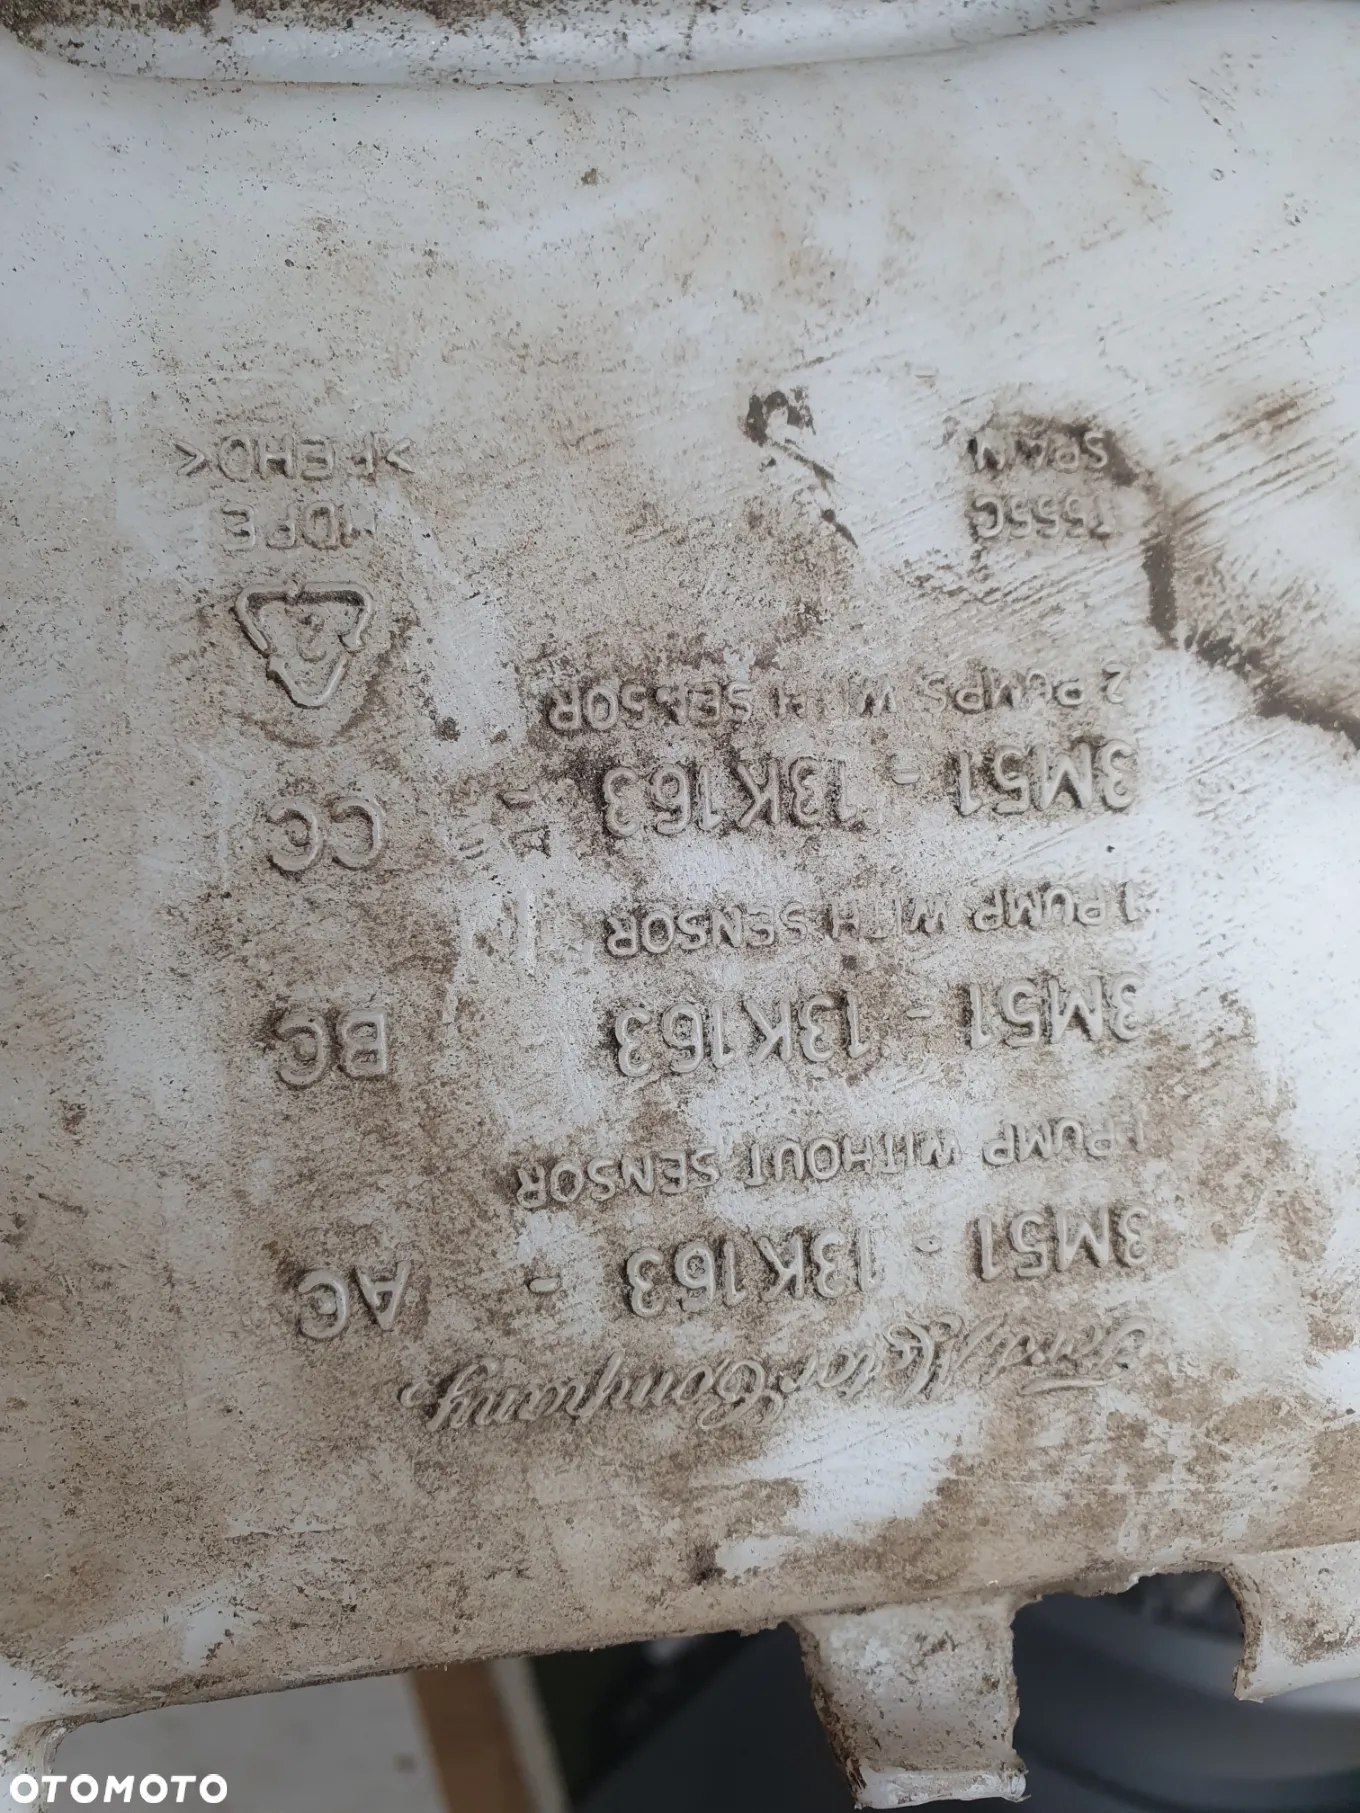 Ford Motor Company
3M51 - 13K163 - AC
1 PUMP WITHOUT SENSOR
3M51 - 13K163 BC
1 PUMP WITH SENSOR
3M51 - 13K163 - CC
2 PUMPS WITH SENSOR
2
T555C HDPE
SPAIN >PEHD<
OTOMOTO